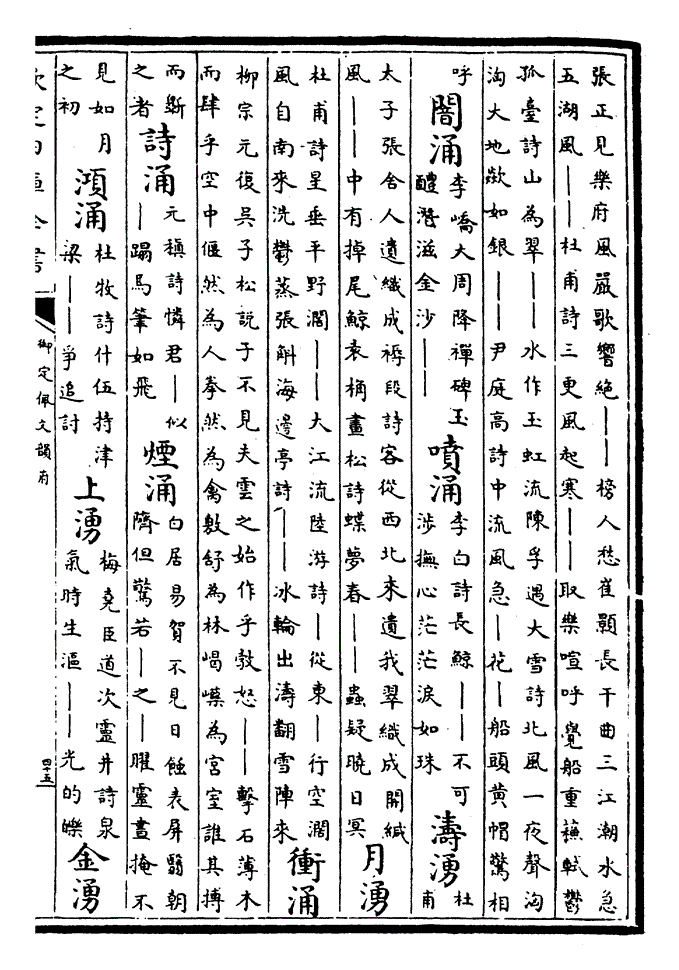 張正見樂府風嚴歌響絶——榜人愁崔顥長干曲三江潮水急
五湖風——杜甫詩三更風起寒——取樂喧呼覺船重蘇軾鬱
孤臺詩山為翠——水作玉虹流陳孚遇大雪詩北風一夜聲洶
洶大地歘如銀——尹庭高詩中流風急—花—船頭黄帽驚相
呼
闇涌
李嶠大周降禪碑玉
醴潛滋金沙——
噴涌
李白詩長鯨——不可
涉撫心茫茫淚如珠
濤湧
杜
甫
太子張舍人遺織成褥段詩客從西北來遺我翠織成開緘
風——中有掉尾鯨袁桷畫松詩蝶夢春——蟲疑曉日冥
月湧
杜甫詩星垂平野濶——大江流陸游詩—從東—行空濶
風自南來洗鬱蒸張斛海邊亭詩——冰輪出濤翻雪陣來
衝涌
柳宗元復吳子松說子不見夫雲之始作乎敦怒——擊石薄木
而肆乎空中偃然為人拳然為禽敷舒為林嵑嶫為宮室誰其搏
而斲
之者
詩涌
元稹詩憐君—似
—蹋馬筆如飛
煙涌
白居易賀不見日蝕表屏翳朝
隮但驚若—之—曜靈晝掩不
見如月
之初
澒涌
杜牧詩什伍持津
梁——爭追討
上湧
梅堯臣道次靈井詩泉
氣時生漚——光的皪
金湧
欽定四庫全書
御定佩文韻府
四十五